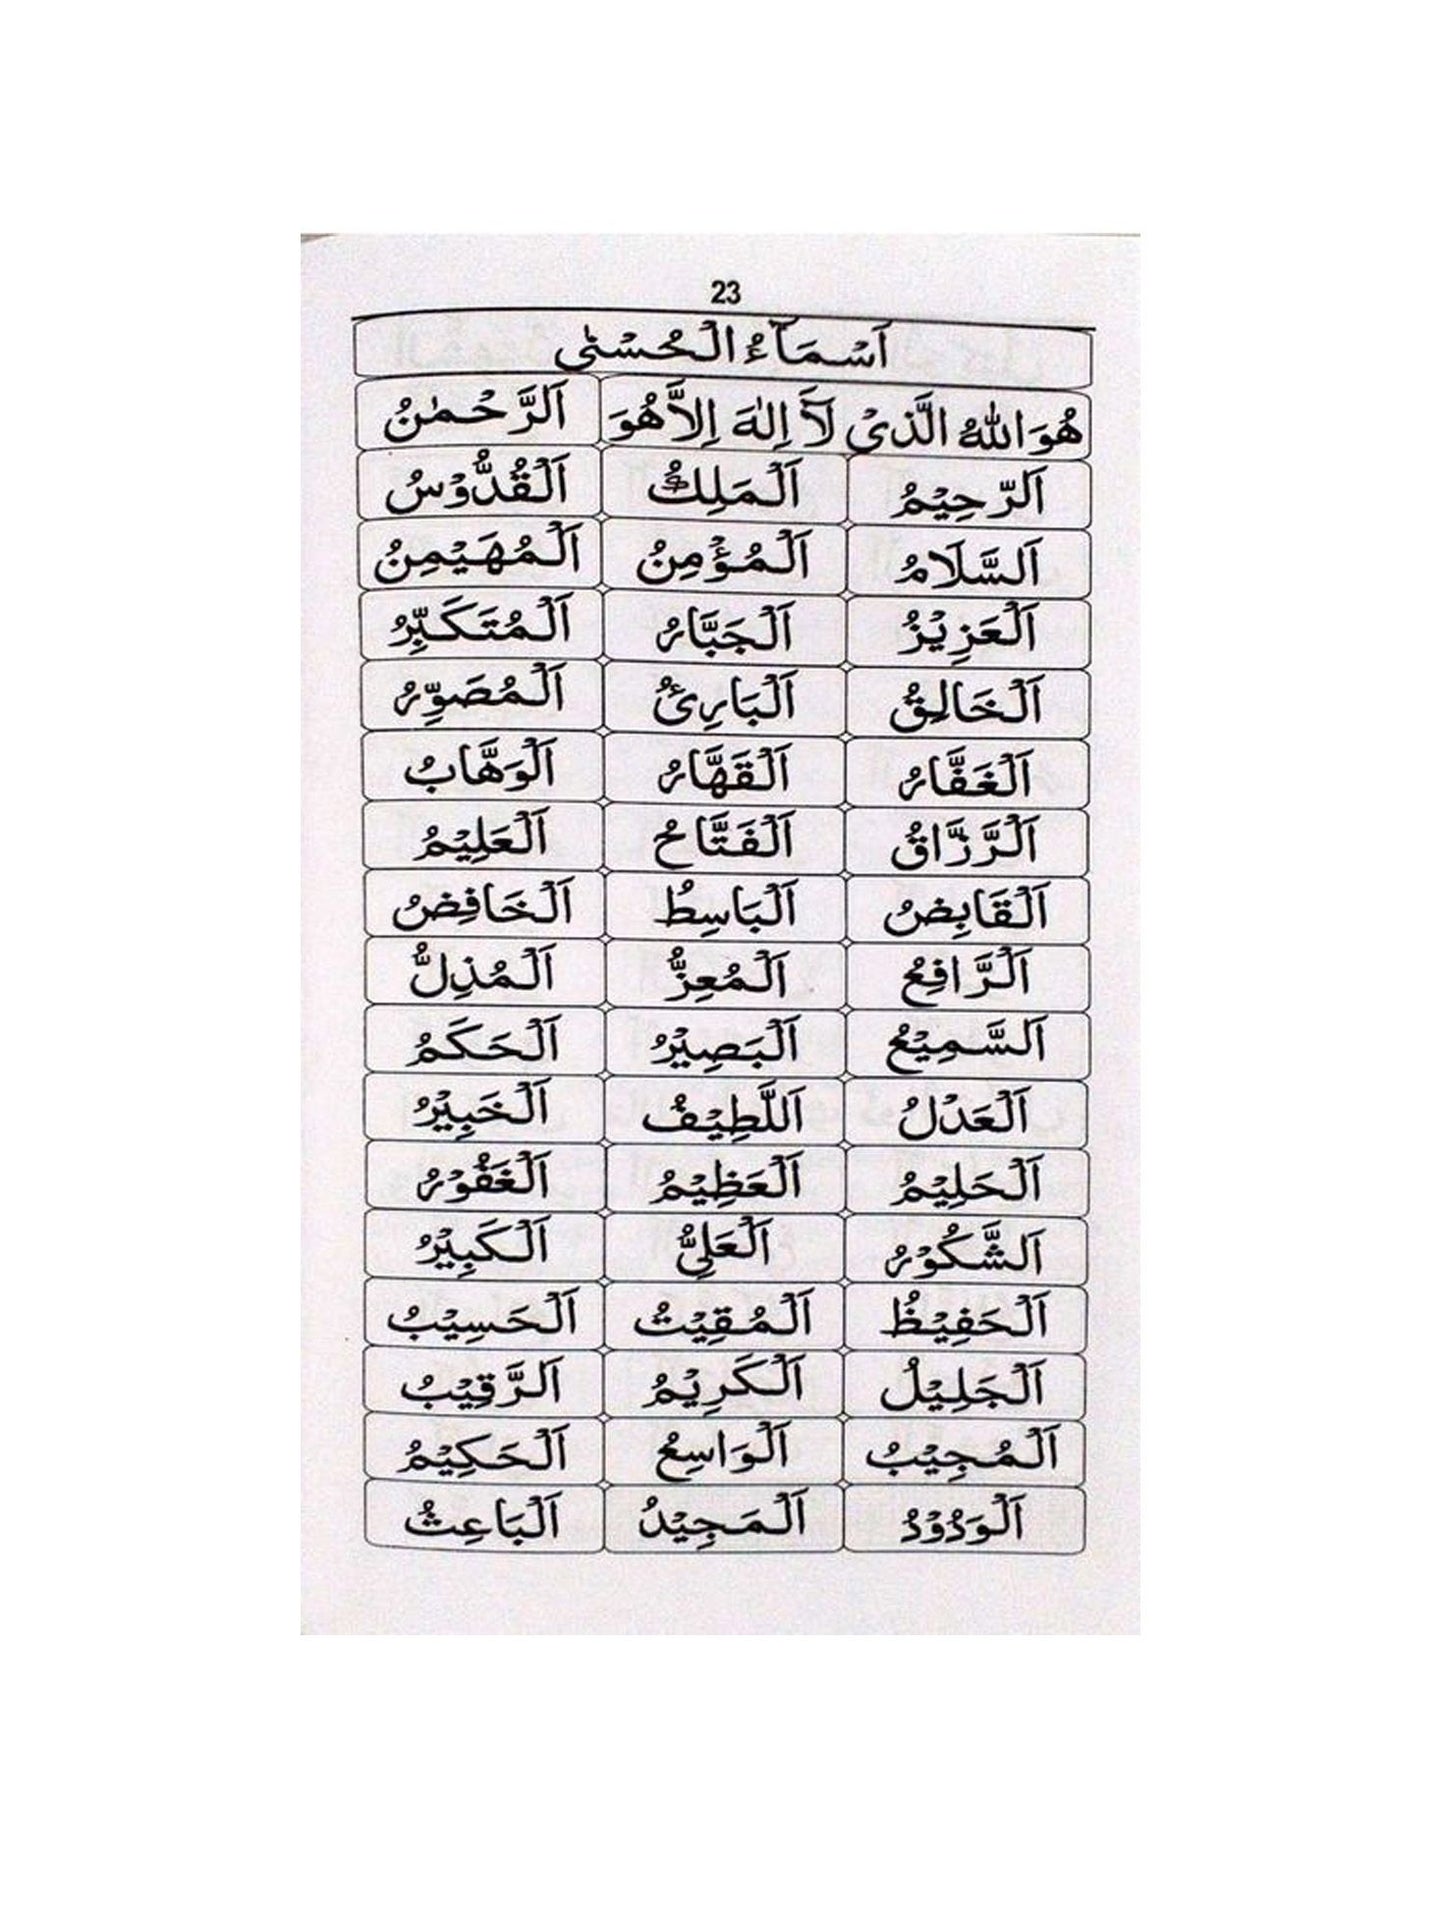 23
اَسْمَآءُ الْحُسْنٰى
هُوَ اللّٰهُ الَّذِىْ لَآ اِلٰهَ اِلَّا هُوَ اَلرَّحْمٰنُ
اَلرَّحِيْمُ اَلْمَلِكُ اَلْقُدُّوْسُ
اَلسَّلَامُ اَلْمُؤْمِنُ اَلْمُهَيْمِنُ
اَلْعَزِيْزُ اَلْجَبَّارُ اَلْمُتَكَبِّرُ
اَلْخَالِقُ اَلْبَارِئُ اَلْمُصَوِّرُ
اَلْغَفَّارُ اَلْقَهَّارُ اَلْوَهَّابُ
اَلْرَّزَّاقُ اَلْفَتَّاحُ اَلْعَلِيْمُ
اَلْقَابِضُ اَلْبَاسِطُ اَلْخَافِضُ
اَلْرَّافِعُ اَلْمُعِزُّ اَلْمُذِلُّ
اَلسَّمِيْعُ اَلْبَصِيْرُ اَلْحَكَمُ
اَلْعَدْلُ اَللَّطِيْفُ اَلْخَبِيْرُ
اَلْحَلِيْمُ اَلْعَظِيْمُ اَلْغَفُوْرُ
اَلشَّكُوْرُ اَلْعَلِىُّ اَلْكَبِيْرُ
اَلْحَفِيْظُ اَلْمُقِيْتُ اَلْحَسِيْبُ
اَلْجَلِيْلُ اَلْكَرِيْمُ اَلرَّقِيْبُ
اَلْمُجِيْبُ اَلْوَاسِعُ اَلْحَكِيْمُ
اَلْوَدُوْدُ اَلْمَجِيْدُ اَلْبَاعِثُ